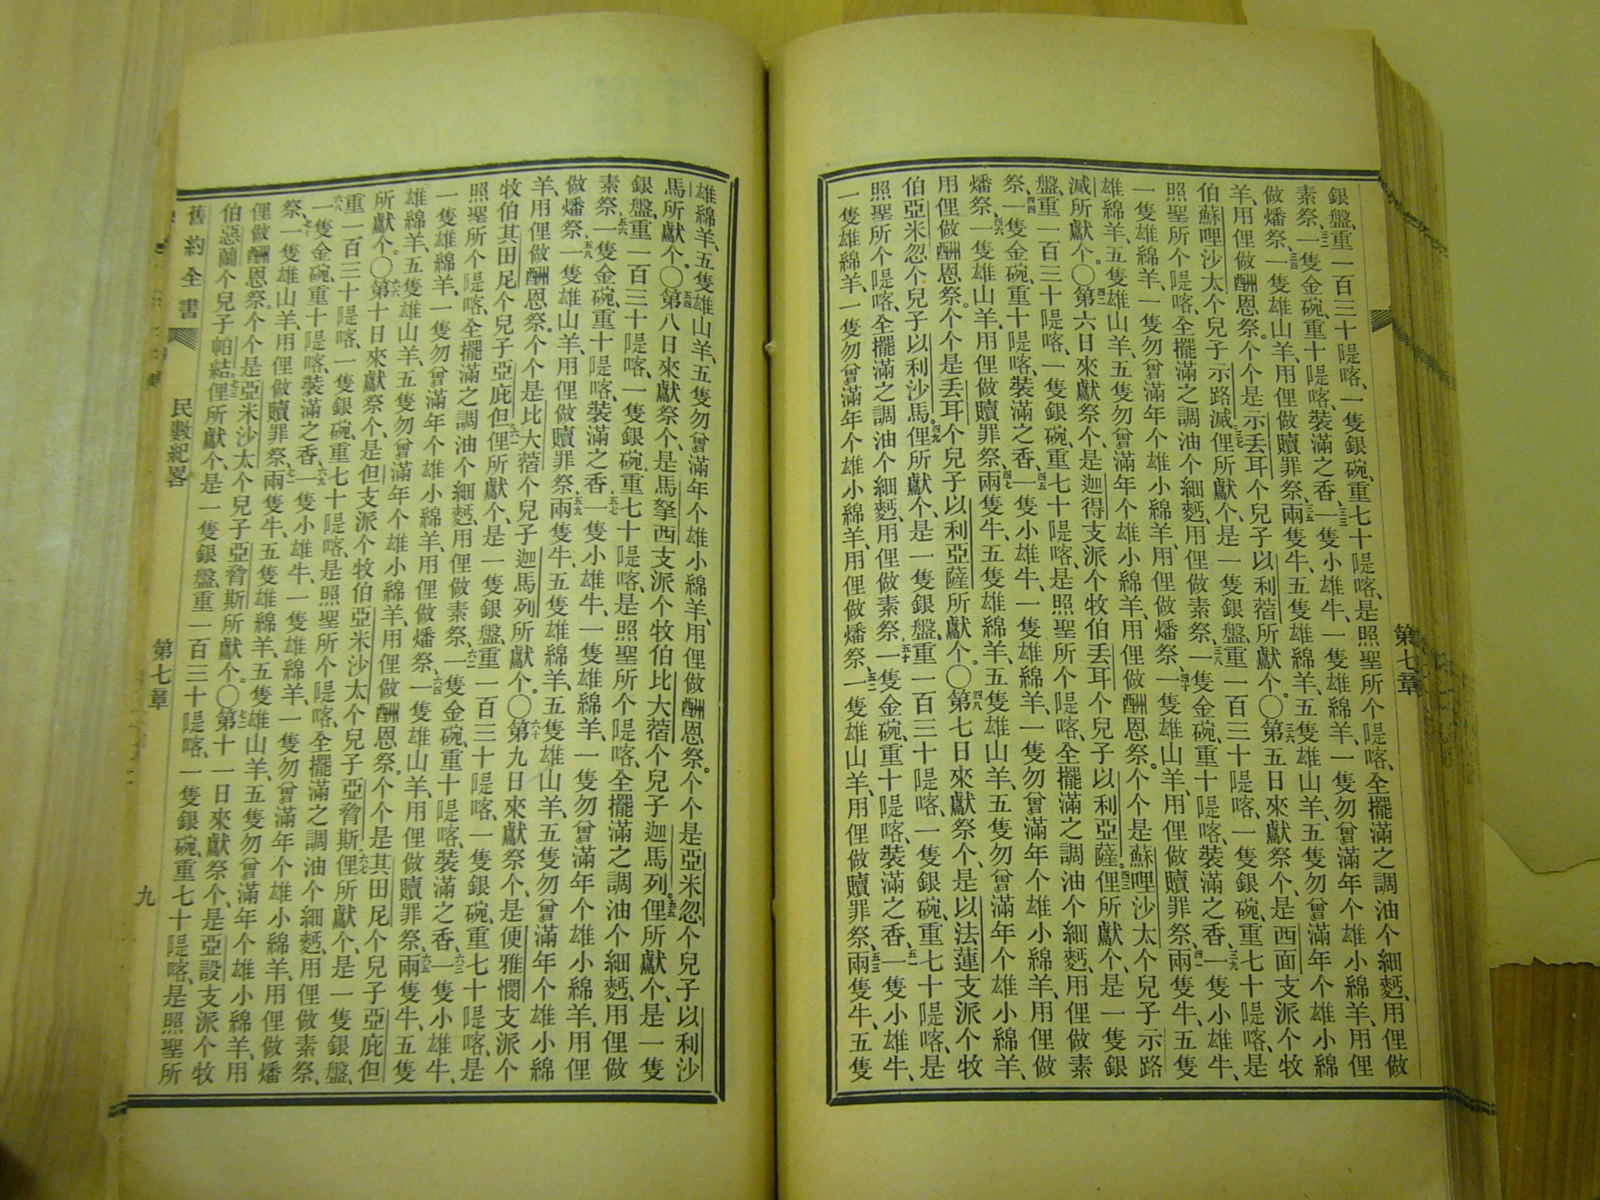 第七章
銀盤、重一百三十隄喀、一隻銀碗、重七十隄喀、是照聖所个隄喀、全擺滿之調油个細麪、用俚做
素祭、三二一隻金碗、重十隄喀、裝滿之香、三三一隻小雄牛、一隻雄綿羊、一隻勿曾滿年个雄小綿羊、用俚
做燔祭、三四一隻雄山羊、用俚做贖罪祭、三五兩隻牛、五隻雄綿羊、五隻雄山羊、五隻勿曾滿年个雄小綿
羊、用俚做酬恩祭。个个是示丟耳个兒子以利蓿所獻个。〇三六第五日來獻祭个、是西面支派个牧
伯蘇哩沙太个兒子示路滅、三七俚所獻个、是一隻銀盤、重一百三十隄喀、一隻銀碗、重七十隄喀、是
照聖所个隄喀、全擺滿之調油个細麪、用俚做素祭、三八一隻金碗、重十隄喀、裝滿之香、三九一隻小雄牛、
一隻雄綿羊、一隻勿曾滿年个雄小綿羊、用俚做燔祭、四十一隻雄山羊、用俚做贖罪祭、四一兩隻牛、五隻
雄綿羊、五隻雄山羊、五隻勿曾滿年个雄小綿羊、用俚做酬恩祭。个个是蘇哩沙太个兒子示路
滅所獻个。〇四二第六日來獻祭个、是迦得支派个牧伯丟耳个兒子以利亞薩。四三俚所獻个、是一隻銀
盤、重一百三十隄喀、一隻銀碗、重七十隄喀、是照聖所个隄喀、全擺滿之調油个細麪、用俚做素
祭、四四一隻金碗、重十隄喀、裝滿之香、四五一隻小雄牛、一隻雄綿羊、一隻勿曾滿年个雄小綿羊、用俚做
燔祭、四六一隻雄山羊、用俚做贖罪祭、四七兩隻牛、五隻雄綿羊、五隻雄山羊、五隻勿曾滿年个雄小綿羊、
用俚做酬恩祭。个个是丟耳个兒子以利亞薩所獻个。〇四八第七日來獻祭个、是以法蓮支派个牧
伯亞米忽个兒子以利沙馬。四九俚所獻个、是一隻銀盤、重一百三十隄喀、一隻銀碗、重七十隄喀、是
照聖所个隄喀、全擺滿之調油个細麪、用俚做素祭、五十一隻金碗、重十隄喀、裝滿之香、五一一隻小雄牛、
一隻雄綿羊、一隻勿曾滿年个雄小綿羊、用俚做燔祭、五二一隻雄山羊、用俚做贖罪祭、五三兩隻牛、五隻
雄綿羊、五隻雄山羊、五隻勿曾滿年个雄小綿羊、用俚做酬恩祭。个个是亞米忽个兒子以利沙
馬所獻个。〇五四第八日來獻祭个、是馬拏西支派个牧伯比大蓿个兒子迦馬列。五五俚所獻个、是一隻
銀盤、重一百三十隄喀、一隻銀碗、重七十隄喀、是照聖所个隄喀、全擺滿之調油个細麪、用俚做
素祭、五六一隻金碗、重十隄喀、裝滿之香、五七一隻小雄牛、一隻雄綿羊、一隻勿曾滿年个雄小綿羊、用俚
做燔祭、五八一隻雄山羊、用俚做贖罪祭、五九兩隻牛、五隻雄綿羊、五隻雄山羊、五隻勿曾滿年个雄小綿
羊、用俚做酬恩祭。个个是比大蓿个兒子迦馬列所獻个。〇六十第九日來獻祭个、是便雅憫支派个
牧伯其田尼个兒子亞庇但、六一俚所獻个、是一隻銀盤、重一百三十隄喀、一隻銀碗、重七十隄喀、是
照聖所个隄喀、全擺滿之調油个細麪、用俚做素祭、六二一隻金碗、重十隄喀、裝滿之香、六三一隻小雄牛、
一隻雄綿羊、一隻勿曾滿年个雄小綿羊、用俚做燔祭、六四一隻雄山羊、用俚做贖罪祭、六五兩隻牛、五隻
雄綿羊、五隻雄山羊、五隻勿曾滿年个雄小綿羊、用俚做酬恩祭。个个是其田尼个兒子亞庇但
所獻个。〇六六第十日來獻祭个、是但支派个牧伯亞米沙太个兒子亞脅斯、六七俚所獻个、是一隻銀盤、
重一百三十隄喀、一隻銀碗、重七十隄喀、是照聖所个隄喀、全擺滿之調油个細麪、用俚做素祭、
六八一隻金碗、重十隄喀、裝滿之香、六九一隻小雄牛、一隻雄綿羊、一隻勿曾滿年个雄小綿羊、用俚做燔
祭、七十一隻雄山羊、用俚做贖罪祭、七一兩隻牛、五隻雄綿羊、五隻雄山羊、五隻勿曾滿年个雄小綿羊、用
俚做酬恩祭。个个是亞米沙太个兒子亞脅斯所獻个。〇七二第十一日來獻祭个、是亞設支派个牧
伯惡蘭个兒子帕結、七三俚所獻个、是一隻銀盤、重一百三十隄喀、一隻銀碗、重七十隄喀、是照聖所
舊約全書 民數紀畧 第七章 九